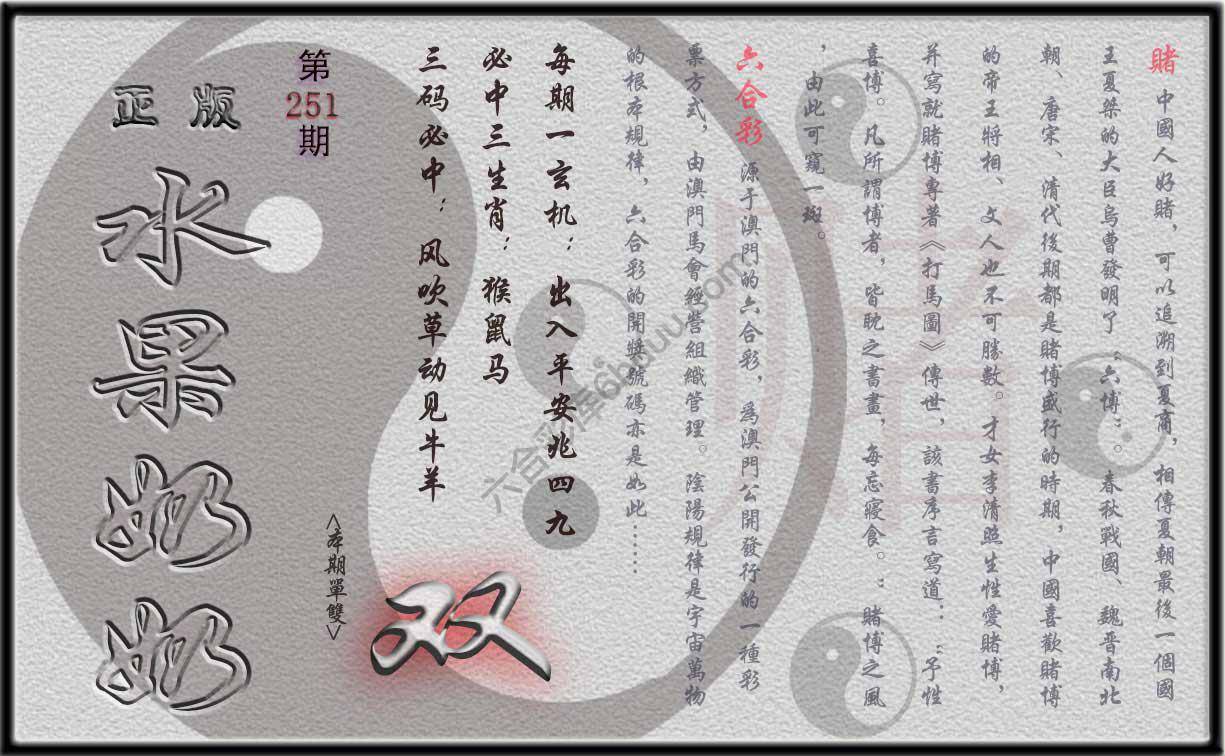 賭 中國人好賭，可以追溯到夏商，相傳夏朝最後一個國
王夏桀的大臣烏曹發明了“六博”。春秋戰國、魏晋南北
朝、唐宋、清代後期都是賭博盛行的時期，中國喜歡賭博
的帝王將相、文人也不可勝數。才女李清照生性愛賭博，
并寫就賭博專著《打馬圖》傳世，該書序言寫道：“予性
喜博。凡所謂博者，皆眈之書畫，每忘寢食。”賭博之風
，由此可窺一斑。
六合彩 源于澳門的六合彩，爲澳門公開發行的一種彩
票方式，由澳門馬會經營組織管理。陰陽規律是宇宙萬物
的根本規律，六合彩的開獎號碼亦是如此……
每期一玄机：出入平安兆四九
必中三生肖：猴鼠马
三码必中：风吹草动见牛羊
第
251
期
<本期單雙>
双
正版
水果奶奶
賭
六合彩库6hduu.com